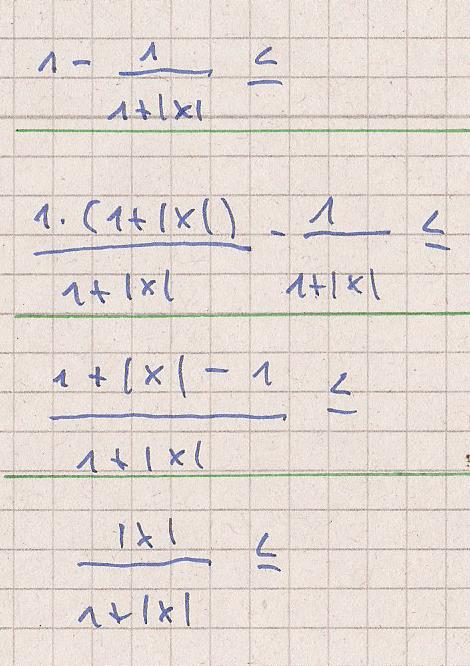 1 - 1/(1+|x|) ≤
1·(1+|x|)/(1+|x|) - 1/(1+|x|) ≤
(1+|x|-1)/(1+|x|) ≤
|x|/(1+|x|) ≤